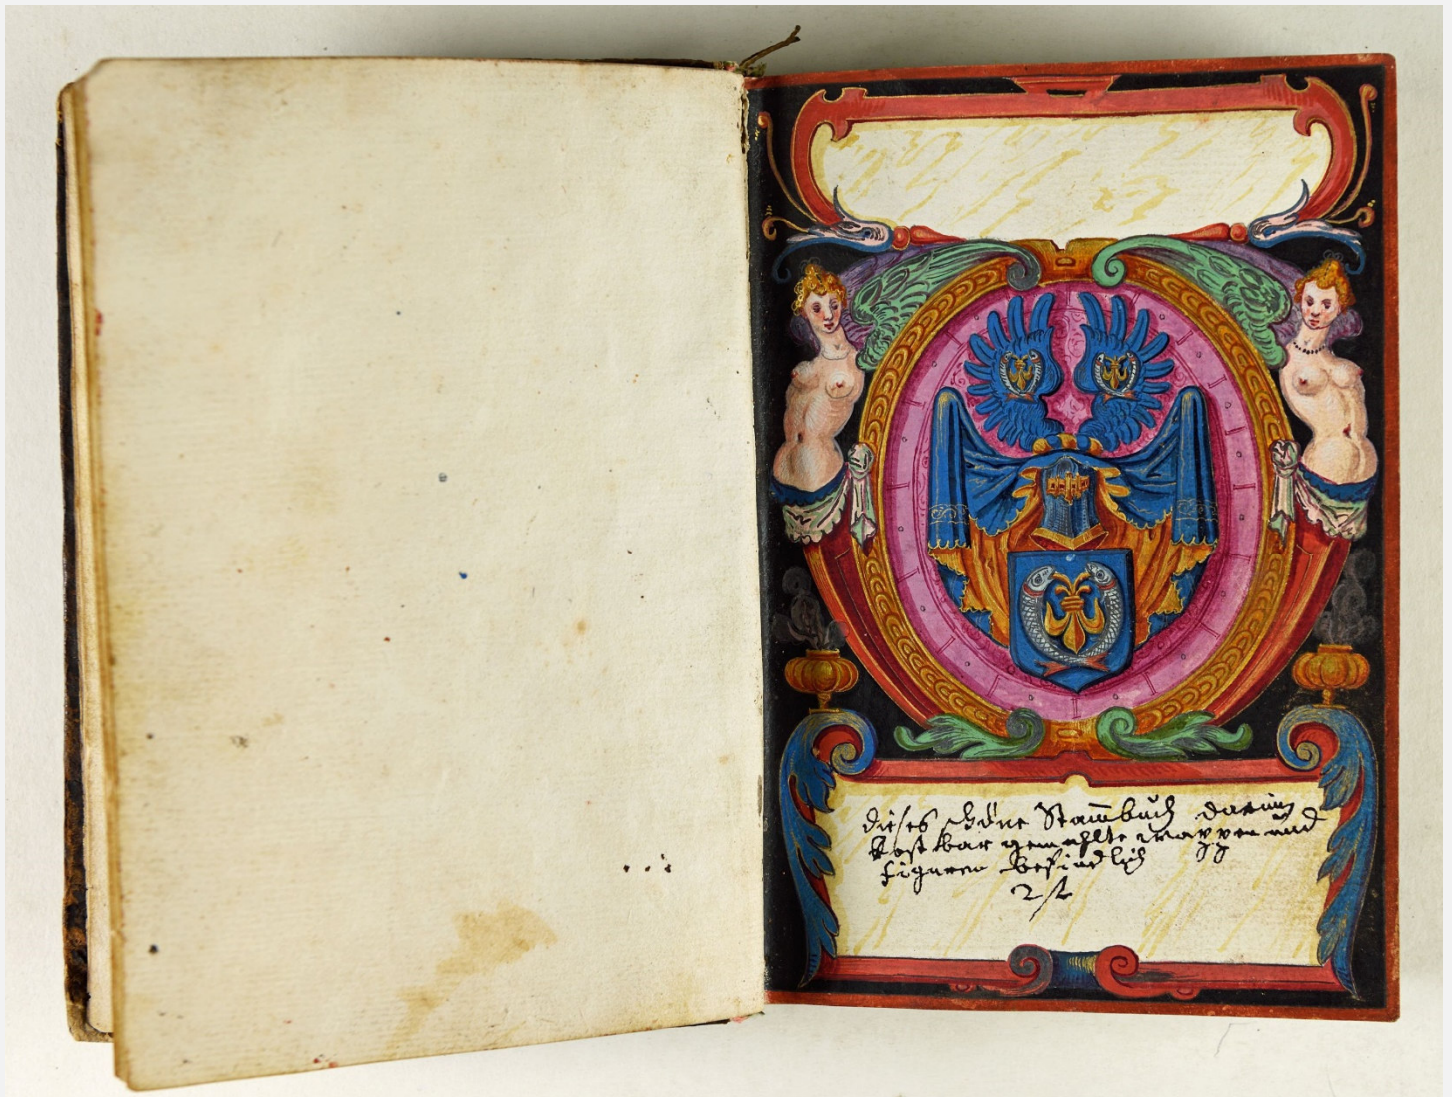 dieses schöne Stam̄buch darin̄
kostbar gemahlte wappen und
figuren befindlich